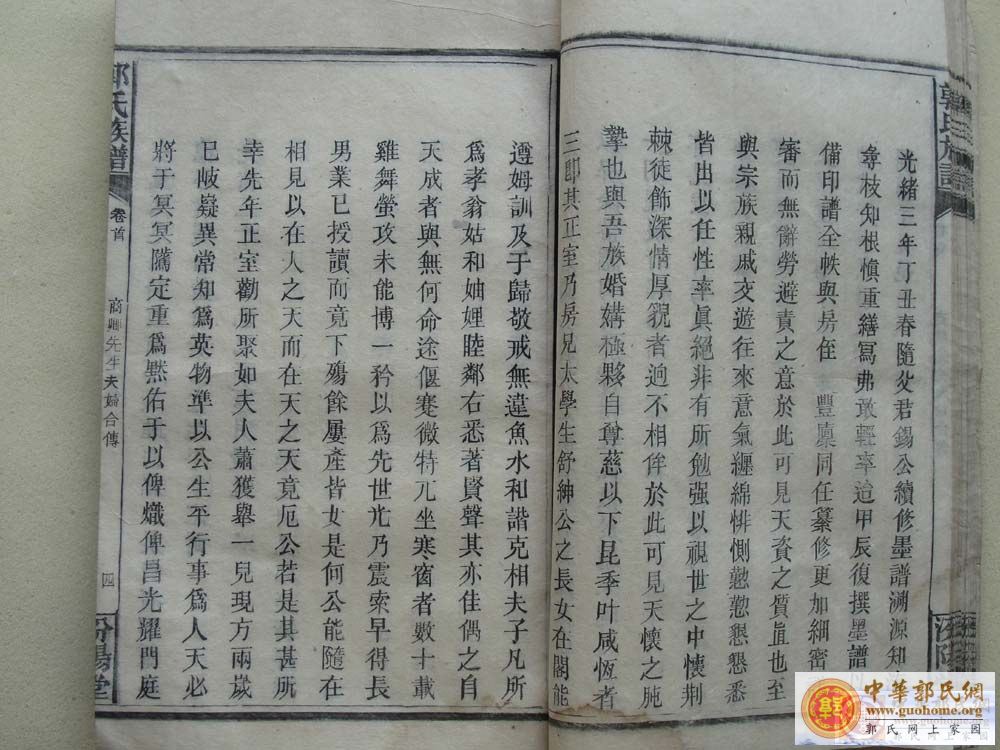 光緒三年丁丑春隨父君錫公續修墨譜溯源知
尋枝知根愼重繕寫弗敢輕率迨甲辰復撰墨譜
備印譜全帙與房侄 豐廪同任纂修更加細密
審而無辭勞避責之意於此可見天資之質直也至
與宗族親戚交遊往來意氣纏綿悱惻懃懃懇懇悉
皆出以任性率眞絕非有所勉强以視世之中懷荆
棘徒飾深情厚貌者迥不相侔於此可見天懷之肫
摯也與吾族婚媾極夥自尊慈以下昆季叶咸恆者
三卽其正室乃房兄太學生舒紳公之長女在閣能
遵姆訓及于歸敬戒無違魚水和諧克相夫子凡所
爲孝翁姑和妯娌睦鄰右悉著賢聲其亦佳偶之自
天成者與無何命途偃蹇微特兀坐寒窗者數十載
雞舞螢攻未能博一衿以爲先世光乃震索早得長
男業已授讀而竟下殤餘屢產皆女是何公能隨在
相見以在人之天而在天之天竟厄公若是其甚所
幸先年正室勸所聚如夫人蕭獲舉一兒現方兩歲
已岐嶷異常知爲英物準以公生平行事爲人天必
將于冥冥隲定重爲默佑于以俾熾俾昌光耀門庭
郭氏族譜
卷首
商卿先生夫婦合傳
四
汾陽堂
郭氏族譜
汾陽
中華郭氏網
www.guohome.org
郭氏网上家园